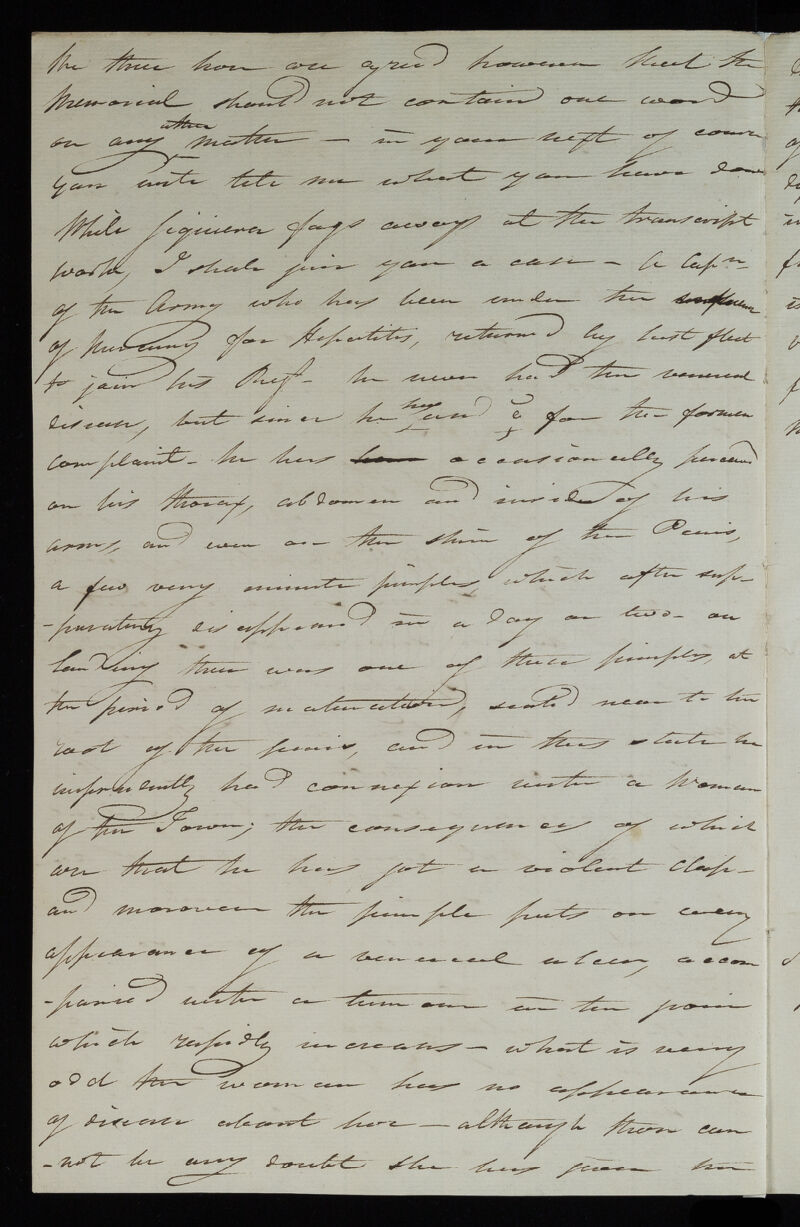 We three here are agreed however that the
Memorial should not contain one word
on any other matter – in your next of course
you will tell me what you have done
While Siquiera fags away at the transcript
work, I shall give you a case – A Capn.
of the Army who has been under the influence
of Mercury for Hepatitis, returned by last fleet
to join his Regt – he never had the venereal
disease, but since he has used ☿ for the former
complaint – he has occasionally perceived
on his thorax, abdomen and inside of his
arms, and even on the skin of the Penis,
a few very minute pimples, which after sup-
-purating disappeared in a day or two – on
landing there was one of these pimples, at
the period of maturation, seated near to the
root of the penis, and in this state he
imprudently had connexion with a Woman
of the Town; the consequences of which
are that he has got a violent Clap –
and moreover the pimple puts on every
appearance of a venereal ulcer, accom
-panied with a tumour in the groin
which rapidly increases – what is very
odd the woman has no appearance
of disease about her – although there can
-not be any doubt she has given him